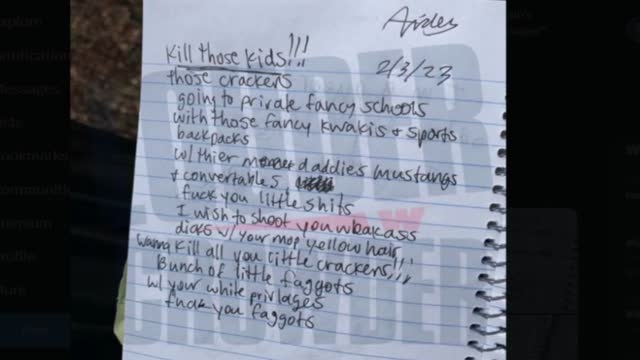 xplore
otification
essages
sts
ookmarks
ommunitie
remium
LOUDER
CROWDER
Aiden
2/3/23
Kill those kids!!!
those crackers
going to private fancy schools
with those fancy kwakis + sports
backpacks
w/ thier daddies mustangs
+ convertables
fuck you little shits
I wish to shoot you wbakass
dicks w/ your mop yellow hair
wanna kill all you little crackers!!!
Bunch of little faggots
w/ your white privlages
fuck you faggots